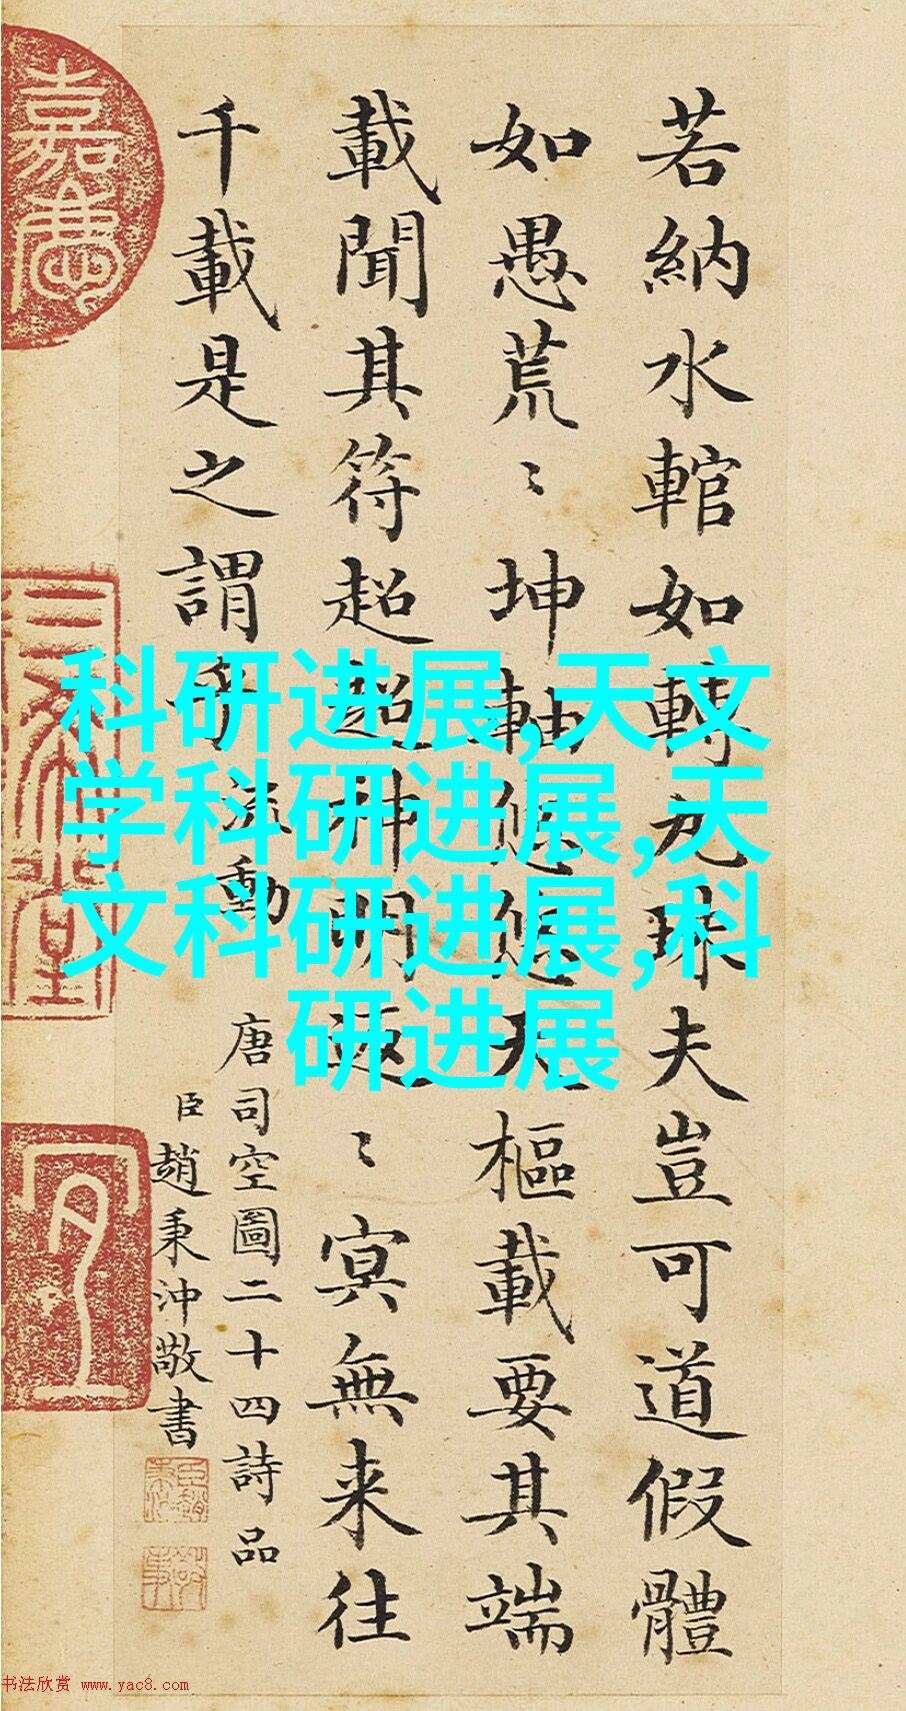 若納水輨如轉丸珠夫豈可道假體
如愚荒〻坤軸悠悠天樞載要其端
載聞其符超超神明返〻冥無来往
千載是之謂乎 流動
唐司空圖二十四詩品
臣趙秉沖敬書
嘉慶
科研进展,天文
学科研进展,天
文科研进展,科
研进展
书法欣赏 www.yac8.com